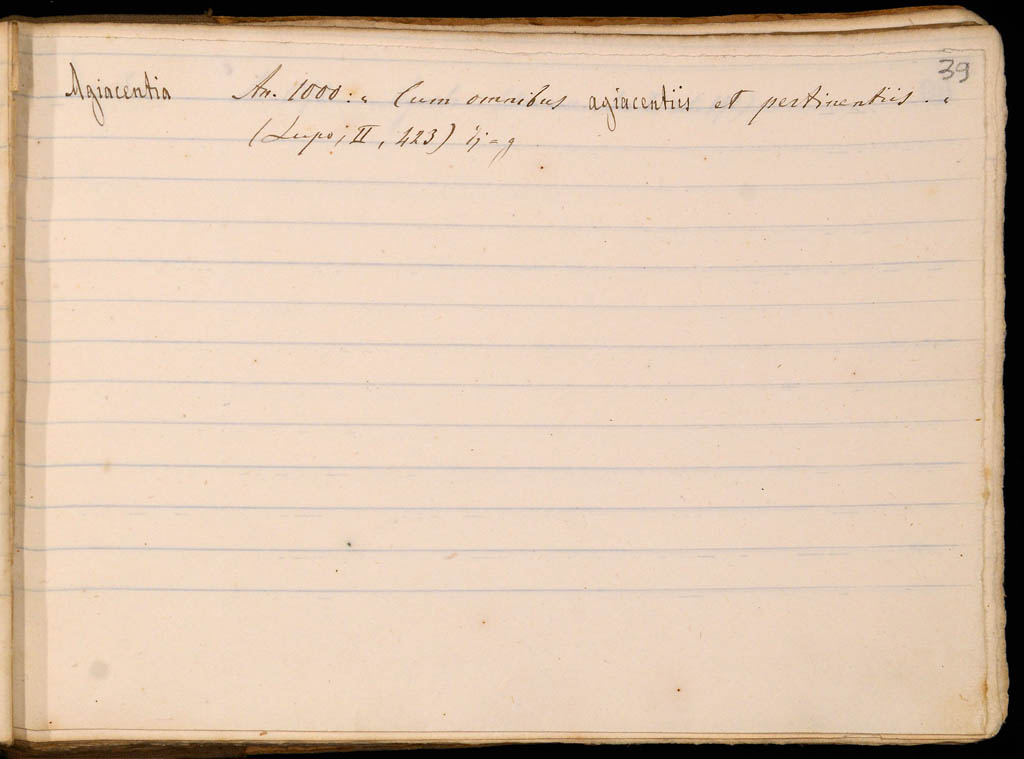 39
Agiacentia An. 1000: " Cum omnibus agiacentiis et pertinentiis. "
(Lupo, II, 423) ij = g